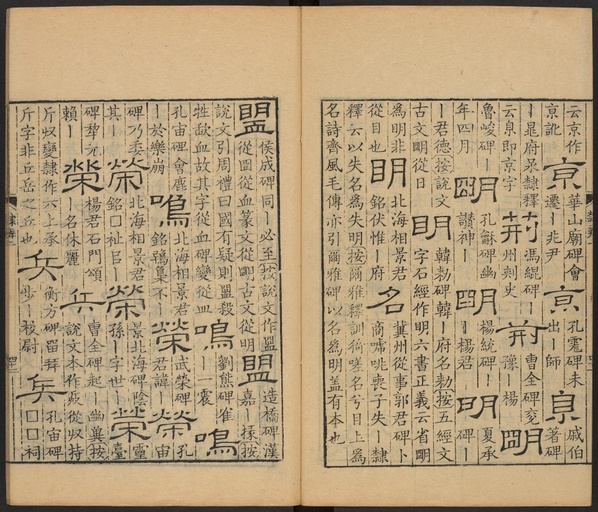 云京作
京訛
京
華山廟碑會
遷丨兆尹
京
孔宙碑未
出丨師
京
戚伯
著碑
丨是府丞隸釋
云臮即京字
荊
馮緄碑丨
州刺史
荊
曹全碑兗
豫丨楊
明
魯峻碑丨
年四月
明
孔龢碑幽
讚神丨
明
楊統碑丨
丨楊君
明
夏承
碑丨
丨君德按說文
古文明從日
明
韓勑碑韓丨府名勑按五經文
字石經作明六書正義云省朙
為明非
從目也
明
北海相景君
銘伏惟丨府
名
冀州從事郭君碑卜
商嘑咷喪子失丨隸
釋云以失名為失明按爾雅釋訓猗嗟名兮目上為
名詩齊風毛傳亦引爾雅碑以名為明蓋有本也
盟
侯成碑同丨必至按說文作盟
從囧從血篆文從朙古文從明
盟
造橋碑漢
嘉丨㨾按
說文引周禮曰國有疑則盟殺
牲歃血故其字從血碑變從皿
鳴
劉熊碑隹
丨一震
鳴
孔宙碑會鹿
丨於樂崩
鳴
北海相景君
銘鵶集不丨
榮
武榮碑
君諱丨
榮
孔宙
碑乃委
其丨
榮
北海相景君
銘□祉臣丨
榮
景北海碑陰
孫丨字世丨
榮
靈
臺
碑犂元
賴丨
榮
楊君石門頌
丨名休麗
兵
曹全碑起丨幽冀按
說文本作𠔏從𠬞持
斤𠬞變隸作六上承
斤字非丘岳之丘也
兵
衡方碑留拜
步丨校尉
兵
孔宙碑
□□祠